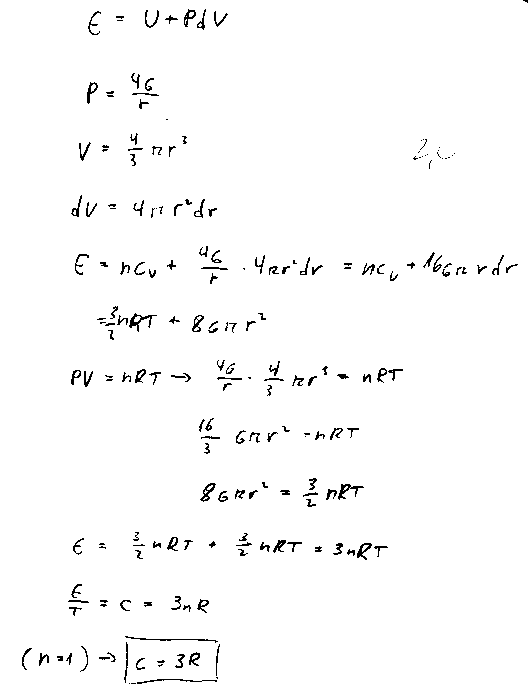 ϵ = U + PdV
P = 4σ/r
V = 4/3 πr³
2,0
dV = 4πr²dr
ϵ = ncᵥ + 4σ/r · 4πr²dr = ncᵥ + 16σπrdr
= 3/2 nRT + 8σπr²
PV = nRT → 4σ/r · 4/3 πr³ = nRT
16/3 σπr² = nRT
8σπr² = 3/2 nRT
ϵ = 3/2 nRT + 3/2 nRT = 3nRT
ϵ/T = c = 3nR
(n=1) → c = 3R